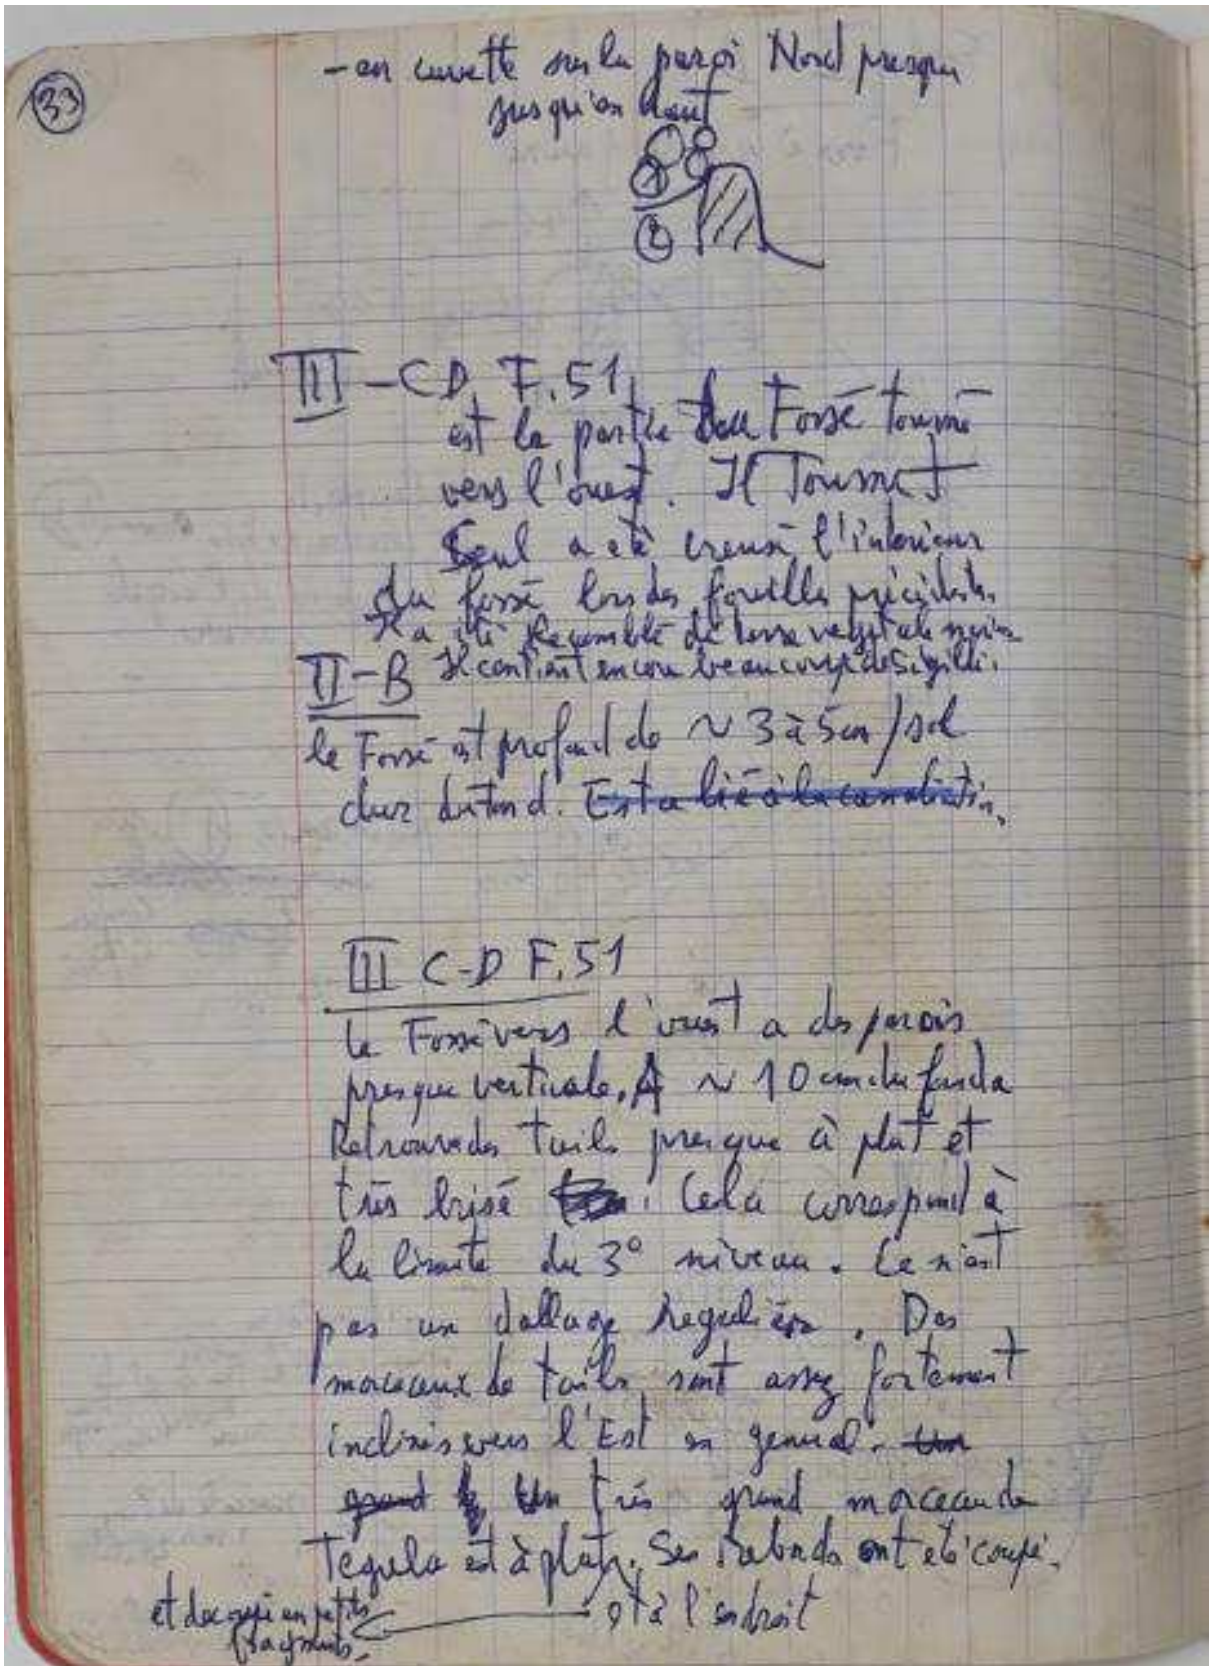 33
- en cuvette sur la paroi Nord presque
jusqu'en haut
2
III - CD F.51
est la partie du Fossé tourné
vers l'ouest. Il Tournet
Seul a été creusé l'interieur
du fossé lors des fouilles précédentes
Il a été de terre vegetale noire
II-B Il contient encore beaucoup de Sigillé.
le Fossé est profond de ~ 3 à 5 cm / sol
Est a lié à la canalisation.
III C-D F.51
le Fossé vers l'ouest a des parois
presque verticale. A ~ 10 cm du fond a
Retrouve des tuiles presque à plat et
très brisé. Cela correspond à
la limite du 3° niveau. Ce n'est
pas un dallage Regulièr. Des
morceaux de tuiles sont assez fortement
inclinés vers l'Est en general. Un
grand Un très grand morceau de
Tegula est à plat. Ses rebords ont eté coupé.
et à l'endroit
et decoupé en petits
fragments.